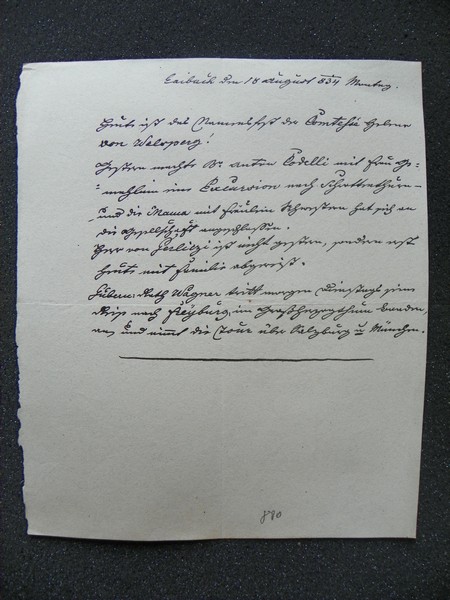 Laibach den 18 August 834 Montag.
Heute ist das Namensfest der Comtesse Helene
von Welsperg!
Gestern machte Br. Anton Codelli mit Frau Ge-
=mahlin eine Excursion nach
und die Mama mit Fräulein Schwestern hat sich an
die Gesellschaft angeschlossen.
Herr von ist nicht gestern, sondern erst
heute mit Familie abgereist.
Gubern: Rath Wagner tritt morgen Dienstags seine
Reise nach Freyburg, im Großherzogthum Baden
an, und nimmt die Tour über Salzburg u München.
890